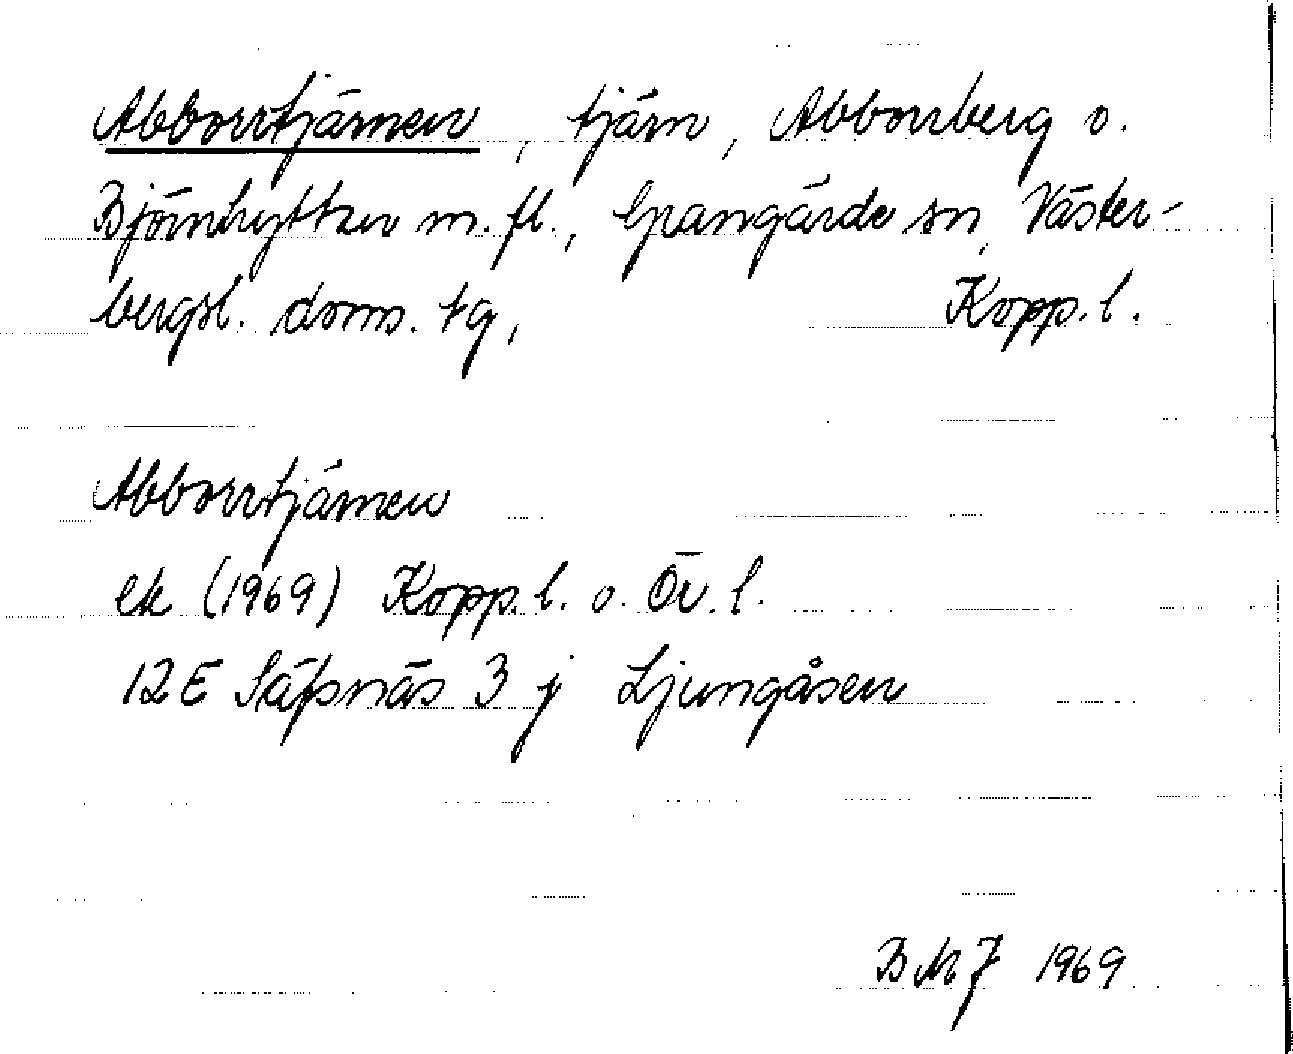 Abborrtjärnen, tjärn, Abborrberg o.
Björnhyttan m. fl., Grangärde sn, Väster-
bergsl. doms. tg, Kopp. l.
Abborrtjärnen
ek (1969) Kopp. l. o. Ör. l.
12 E Säfsnäs 3 j Ljungåsen
1969